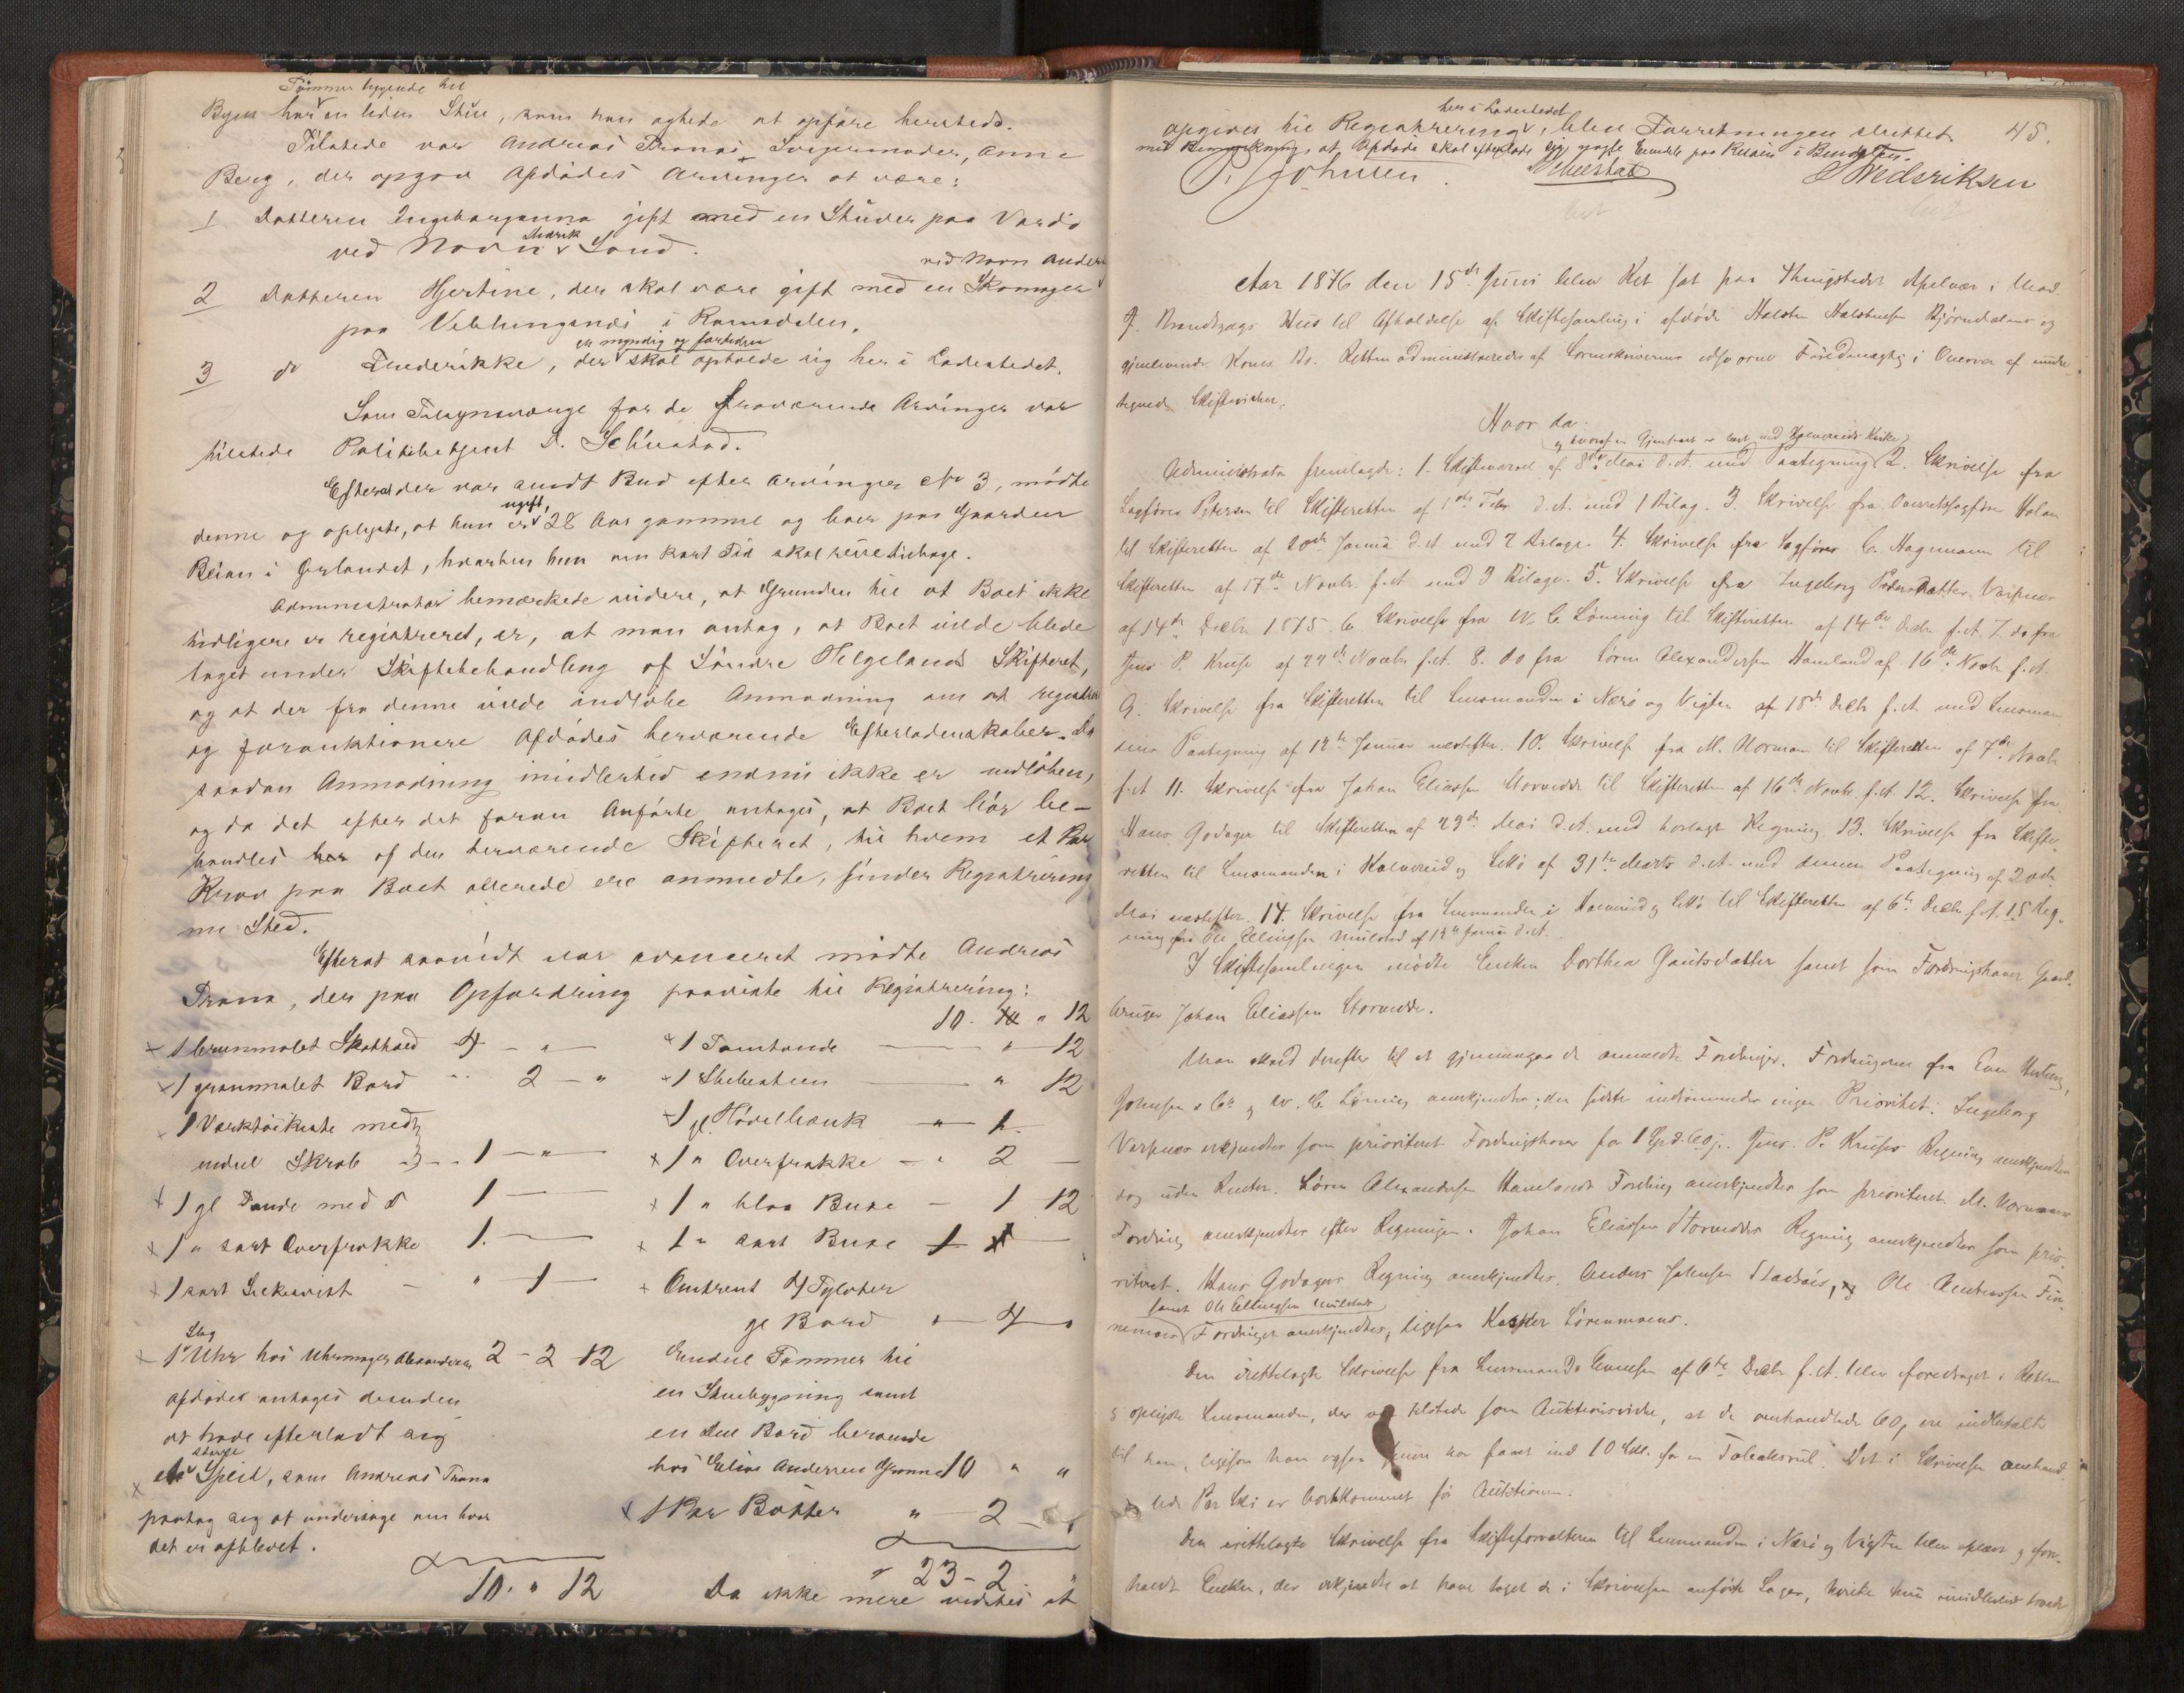 Tømmer liggende til
Byen har en liden Stue, som han agtede at opføre hersteds.
Tilstede var Andreas Tranas Svigermoder, Anne
Berg, der opgav Afdødes Arvinger at være:
1 Datteren Ingeborganna gift med en Stuer paa Vardø
ved Navn Sand.
ved Navn Anders
2 Datteren Hjertine, der skal være gift med en Skomager
paa i Romsdalen.
er myndig og
3 do Frederikke, der skal opholde sig her i Ladestedet.
Som Tilsynsværge for de fraværende Arvinger var
tilstede Politibetjent
Efterat der var sendt Bud efter Arvingen No 3, mødte
ugift,
denne og oplyste, at hun er 28 Aar gammel og har paa Gaarden
Beian i Ørlandet, hvorhen hun om kort Tid skal reise tilbage.
Administrator bemærkede videre, at Grunden til at Boet ikke
tidligere er registreret, er, at man antog, at Boet vilde blive
taget under Skiftebehandling af Søndre Helgelands Skifteret,
og at der fra denne vilde indløbe Anmodning om at registrere
og forauktionere Afdødes herværende Efterladenskaber. Da
saadan Anmodning imidlertid endnu ikke er indløben,
og da det efter det foran Anførte antages, at Boet bør be-
handles her af den herværende Skifteret, til hvem et Par
Krav paa Boet allerede ere anmeldte, finder Registrering
nu Sted.
Efterat saavidt var avanceret mødte Andreas
Trana, der paa Opfordring paaviste til Registrering:
10. " 12
1 brunmalet Skathold 4 - " -
1 Tomtønde - " - 12
1 grønmalet Bord " 2 - "
1 Slibesteen - " 12
1 Værktøikiste med
1 gl Høvelbænk - " 1 -
endel Skrab - 1 - " -
1 " Overfrakke - " 2 -
1 gl Tønde med 1 -
1 " blaa Buxe - 1 12
1 " sort Overfrakke 1. -
1 " sort Buxe 1
1 sort - " 1 -
Omtrent 4 Tylvter
gl Bord " 4 "
Slag
1 Uhr hos Uhrmager 2 - 2 12
Endel Tømmer til
afdøde antages desuden
en Stuebygning samt
at have efterladt sig
en Deel Bord beroende
større
et Speil, som Andreas Trana
hos Elias Andersen 10 " "
paatog sig at undersøge om hvor
1 Par Bøtter " 2 -
det er afblevet.
" 23 - 2 "
10. " 12
Da ikke mere vidstes at
her i Ladestedet
opgives til Registrering, blev Forretningen sluttet 45.
med Bemærkning, at Afdøde skal efterlade sig nogle Eiendele paa Reisen i Bindalen.
P. Johnsen. Frederiksen
Aar 1876 den 15de Juni blev Ret sat paa Thingstedet Apelvær i Mad.
J. Brandtzægs Hus til Afholdelse af Skiftesamling i afdøde Halsten Halstensen Bjørndalens og
gjenlevende Kones Bo. Retten administreredes af Sorenskriverens edsvorne Fuldmægtig i Overvær af under-
tegnede Skiftevidner.
Hvor da:
og hvoraf en Gjenpart er læst ved Kolvereids Kirke
Administrator fremlagde: 1. Skiftevarsel af 8de Mai d.A. med Paategning 2. Skrivelse fra
Sagfører Petersen til Skifteretten af 1ste Febr. d.A. med 1 Bilag. 3. Skrivelse fra Overretssagfører Holan
til Skifteretten af 20de Januar d.A. med 2 Bilage. 4. Skrivelse fra Sagfører C. Hagemann til
Skifteretten af 17de Novbr. f.A. med 3 Bilage. 5. Skrivelse fra Ingeborg Pedersdatter Varpnæs
af 14de Decbr. 1875. 6. Skrivelse fra W. C. Lønning til Skifteretten af 14de Decbr. f.A. 7. do fra
Jens P. Kruse af 22de Novbr. f.A. 8. do fra Søren Alexandersen Hamland af 16de Novbr. f.A.
9. Skrivelse fra Skifteretten til Lensmanden i Nærø og Vigten af 18de Decbr. f.A. med Lensman-
dens Paategning af 12te Januar næstefter. 10. Skrivelse fra M. Norman til Skifteretten af 7de Novbr.
f.A. 11. Skrivelse fra Johan Eliassen Storvedde til Skifteretten af 16de Novbr. f.A. 12. Skrivelse fra
Hans Godager til Skifteretten af 29de Mai d.A. med Regning. 13. Skrivelse fra Skifte-
retten til Lensmanden i Kolvereid og Lekø af 31te Marts d.A. med dennes Paategning af 20de
Mai næstefter. 14. Skrivelse fra Lensmanden i Kolvereid og Lekø til Skifteretten af 6te Decbr. f.A. 15 Reg-
ning fra Ole Ellingsen af 12te Januar d.A.
I Skiftesamlingen mødte Enken Dorthea Gautsdatter samt som Fordringshaver Gaard-
bruger Johan Eliassen Storvedde.
Man skred derefter til at gjennemgaa de anmeldte Fordringer. Fordringerne fra Even
Johnsen & Co og W. C. Lønning anerkjendtes; den sidste indrømmedes ingen Prioritet. Ingeborg
Varpnæs erkjendtes som prioriteret Fordringshaver for 1 Spd. 60 ; Jens P. Kruses Regning anerkjendtes
dog uden Renter. Søren Alexandersen Hamlands Fordring anerkjendtes som prioriteret. M. Normans
Fordring anerkjendtes efter Regningen. Johan Eliassen Storveddes Regning anerkjendtes som prio-
riteret. Hans Godagers Regning anerkjendtes. Anders Johnsen og Ole Andreassen Fin-
samt Ole Ellingsen
Fordringer anerkjendtes, ligesaa Kasper Sørenmoens.
Den irettelagte Skrivelse fra Lensmand af 6te Decbr. f.A. blev foredraget i Retten
og oplyste Lensmanden, der var tilstede som Auktionsvidne, at de omhandlede 60 ere indbetalt
til ham, ligesom han ogsaa har faaet ind 10 Skl. for en Tobaksrul. Det i Skrivelsen omhand-
lede Par Ski er bortkommet før Auktionen.
Den irettelagte Skrivelse fra Skifteforvalteren til Lensmanden i Nærø og Vigten blev oplæst og fore-
holdt Enken, der erkjendte at have taget de i Skrivelsen anførte Sager, hvilke hun imidlertid troede